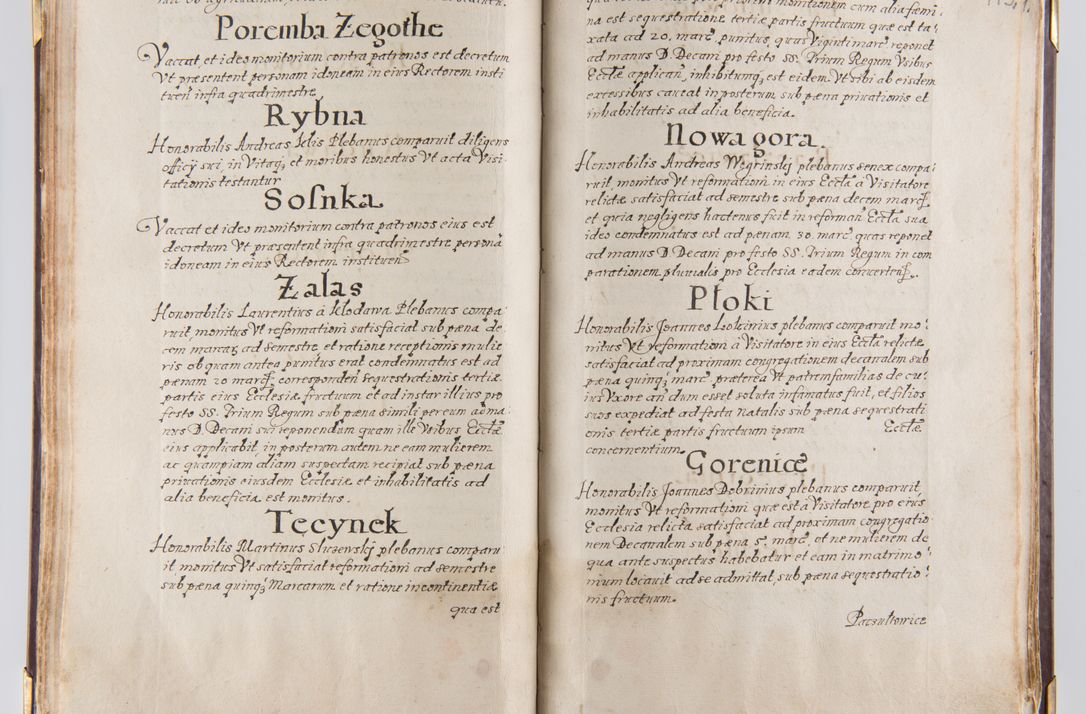 Poremba Zegothe
Vaccat et ideo monitorium contra patronos est decretum
Vt præsentent personam idoneam in eius Rectorem insti
tuen infra quadrimestre
Rybna
Honorabilis Andreas Plebanus comparuit diligens
officÿ sui, in Vitaq, et moribus honestus Vt acta Visi
tationis testantur
Sosnka
Vaccat et ideo monitorium contra patronos eius est
decretum Vt præsentent infra quadrimestre persona
idoneam in eius Rectorem instituen
Zalas
Honorabilis Laurentius à Klodawa Plebanus compa
ruit, monitus Vt reformationi satisfaciat sub pæna de
cem marcaꝝ ad semestre et ratione receptionis mulie
ris ob quam antea punitus erat condemnatus est ad
pænam 20 marc corresponden sequestrationis tertiæ
partis eius Ecclesiæ fructuum et ad instar illius pro
festo SS. Trium Regum sub pæna simili pereum ad ma
nus D. Decani sui reponendum quam ille Vsibus Ecctæ
eius applicabit, in posterum autem ne eam mulierem
ac quampiam aliam suspectam recipiat sub pæna
priuationis eiusdem Ecclesiæ et inhabilitatis ad
alia beneficia est monitus.
Tęcynek
Honorabilis Martinus plebanus comparu
it monitus Vt satisfaciat reformationi ad semestre
sub pæna quinq Marcarum et ratione incontinentiæ
qua est
na est sequestratione tertiæ partis fructuum quæ est ta
xata ad 20. marc punitus, quas Viginti marc reponet
ad manus D. Decani pro festo SS. Trium Regum Vsibus
Ecctæ applican, inhibitumq, est eidem Vt sibi ab eisdem
excessibus caueat in posterum, sub pæna priuationis et
inhabilitatis ad alia beneficia.
Nowa gora.
Honorabilis Andreas Węgrinskj plebanus senex compa
ruit, monitus Vt reformationi in eius Eccta à Visitatore
relictæ satisfaciat ad semestre sub pæna decem marc
et quia negligens hactenus fuit in reforman Eccta sua
ideo condemnatus est ad pænam 30. marc quas reponet
ad manus D. Decani pro festo SS. Trium Regum in com
parationem pluuialis pro Ecclesia eadem conuerten
Płoki
Honorabilis Joannes plebanus comparuit mo
nitus Vt reformationi à Visitatore in eius Eccta relictæ
satisfaciat ad proximam congregationem decanalem sub
pæna quinq, marc, præterea Vt patremfamilias de cu
ius Vxore an dum esset soluta infamatus fuit, et filios
suos expediat ad festa Natalis sub pæna sequestrati
onis tertiæ partis fructuum ipsum Ecctæ
concernentium.
Gorenicæ
Honorabilis Joannes Dobrinius plebanus comparuit
monitus Vt reformationi quæ est à Visitatore pro eius
Ecclesia relicta satisfaciat ad proximam congregatio
nem Decanalem sub pæna 5 marc, et ne mulierem de
qua ante suspectus habebatur et eam in matrimo
nium locauit ad se admittat, sub pæna sequestratio
nis fructuum.
Paczultowice